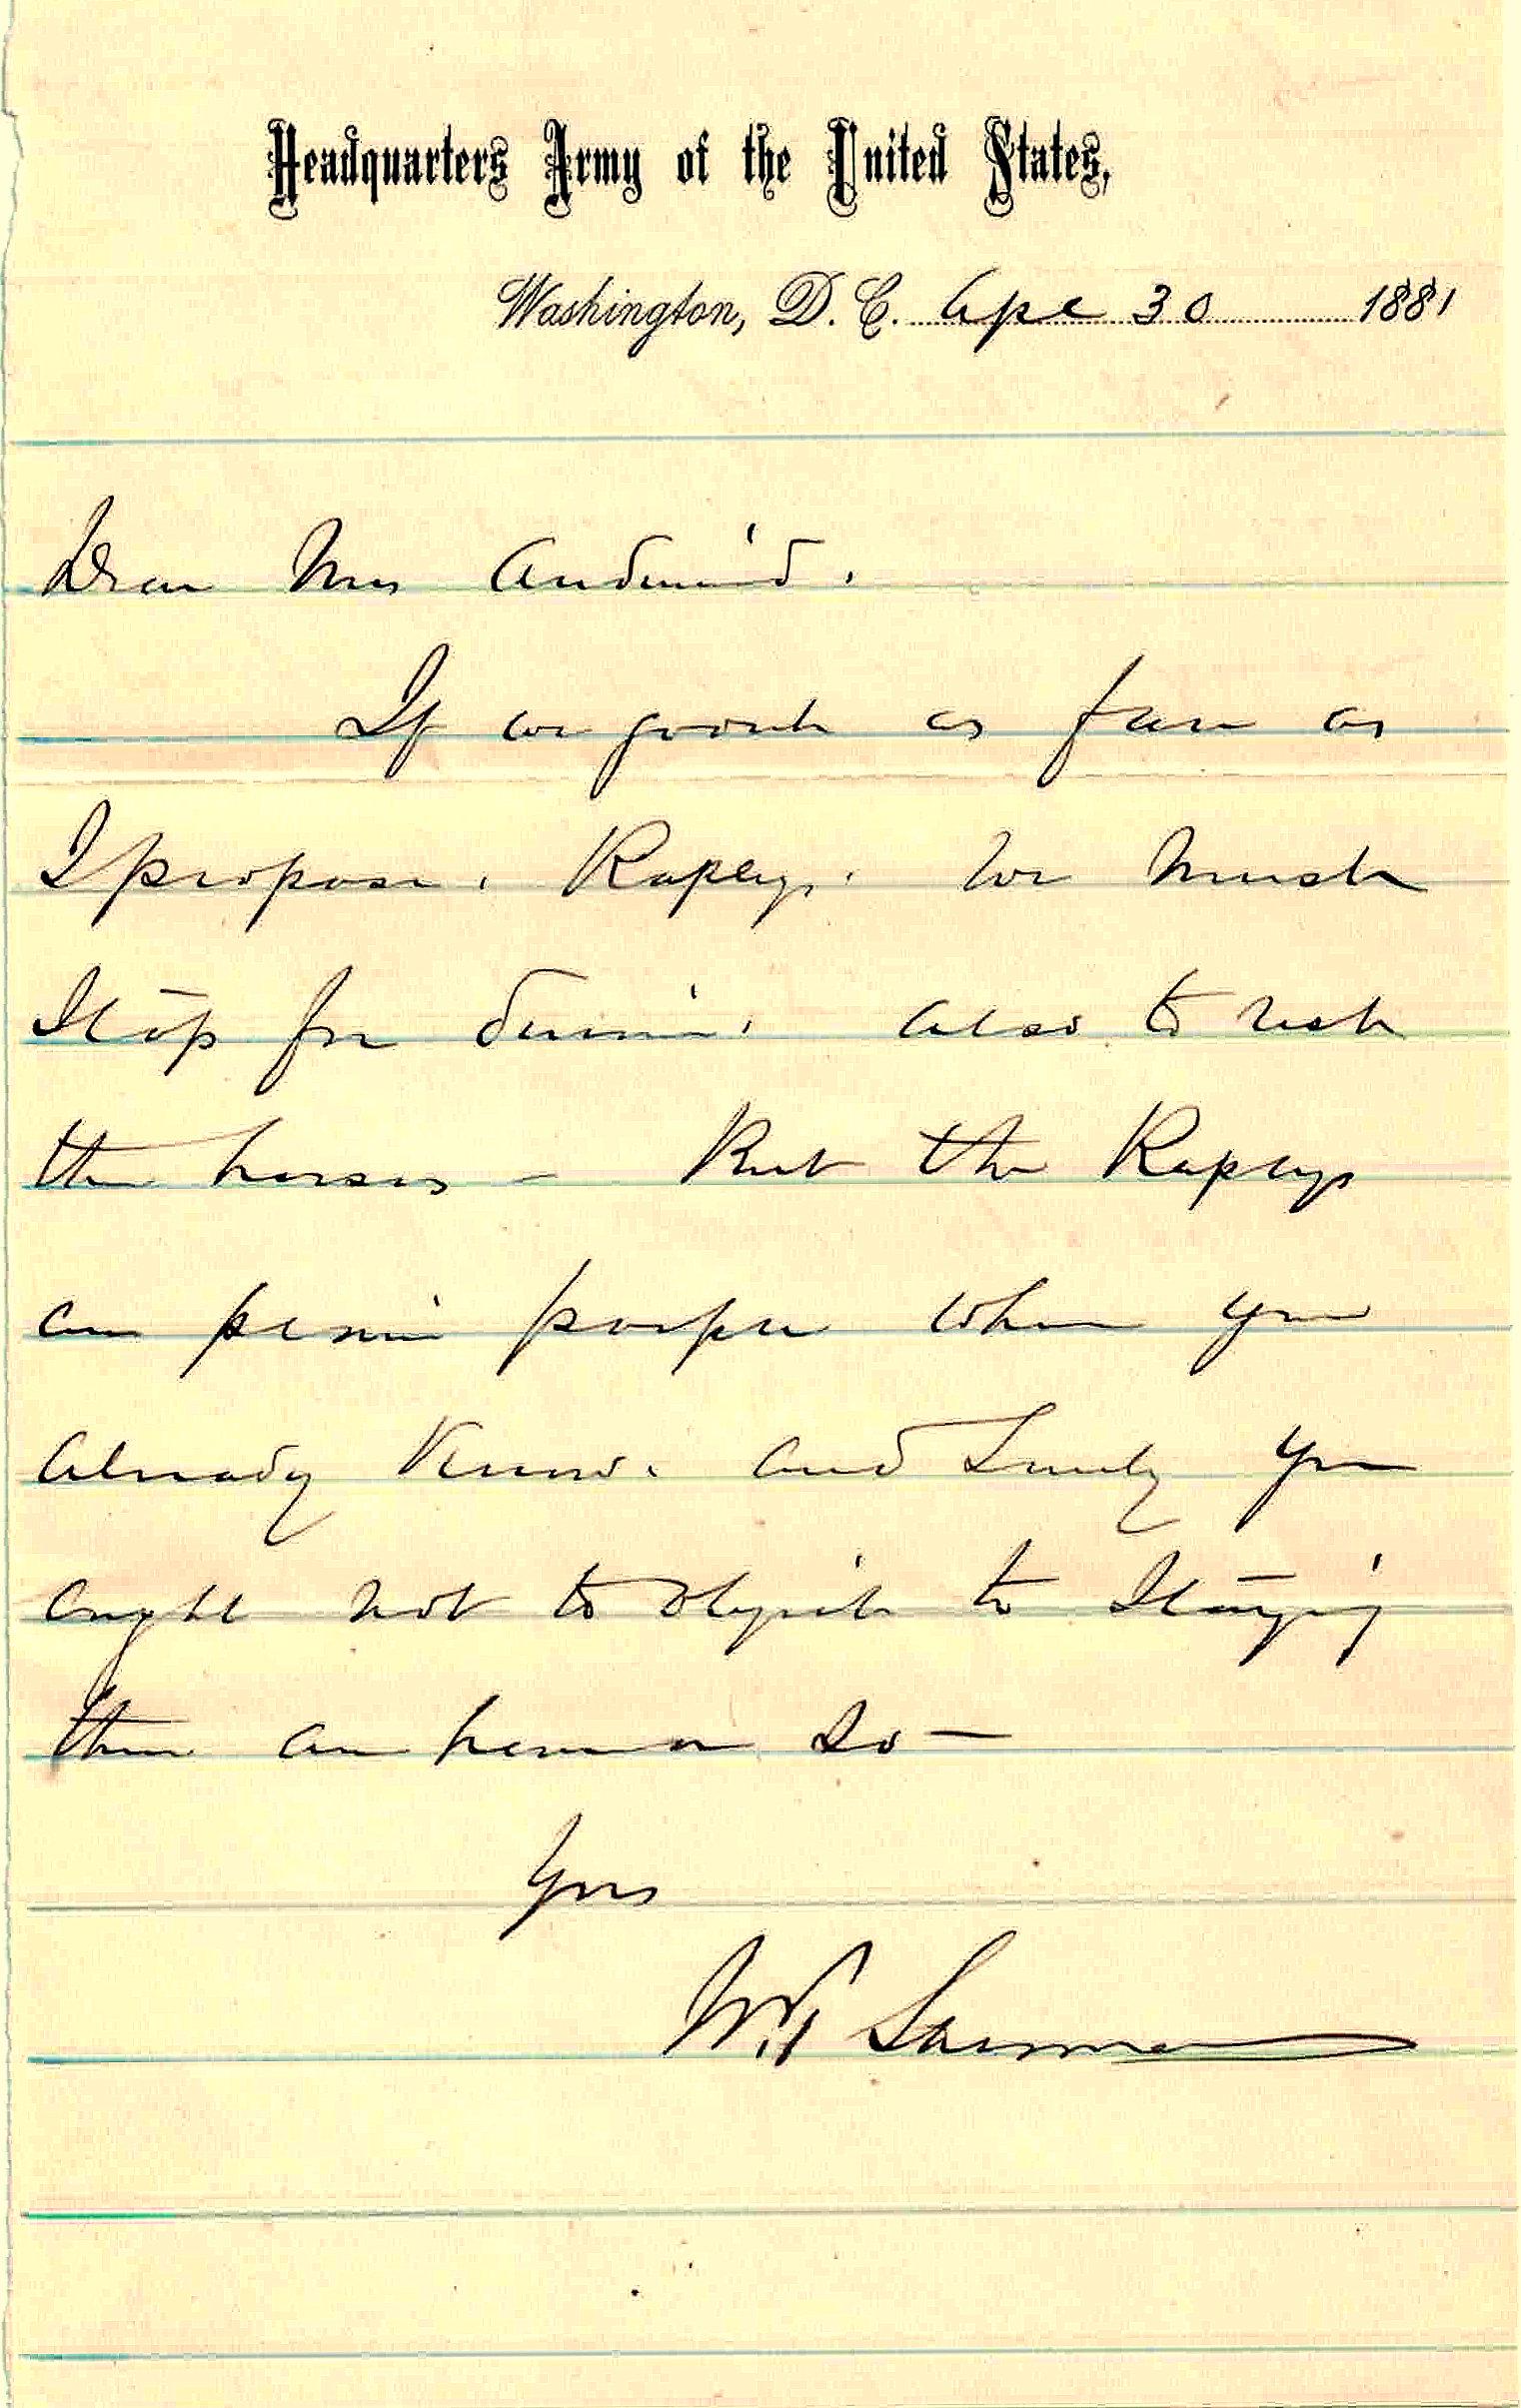 Headquarters Army of the United States,
Washington, D. C. Apl 30 1881
Dear Mrs Audenried.
If we go out as far as
I propose. Rapleys. We must
Stop for dinner. also to rest
the horses — But the Rapleys
are people whom you
already know. and Surely you
ought not to object to Staying
there an hour or so —
Yrs
W. T. Sherman